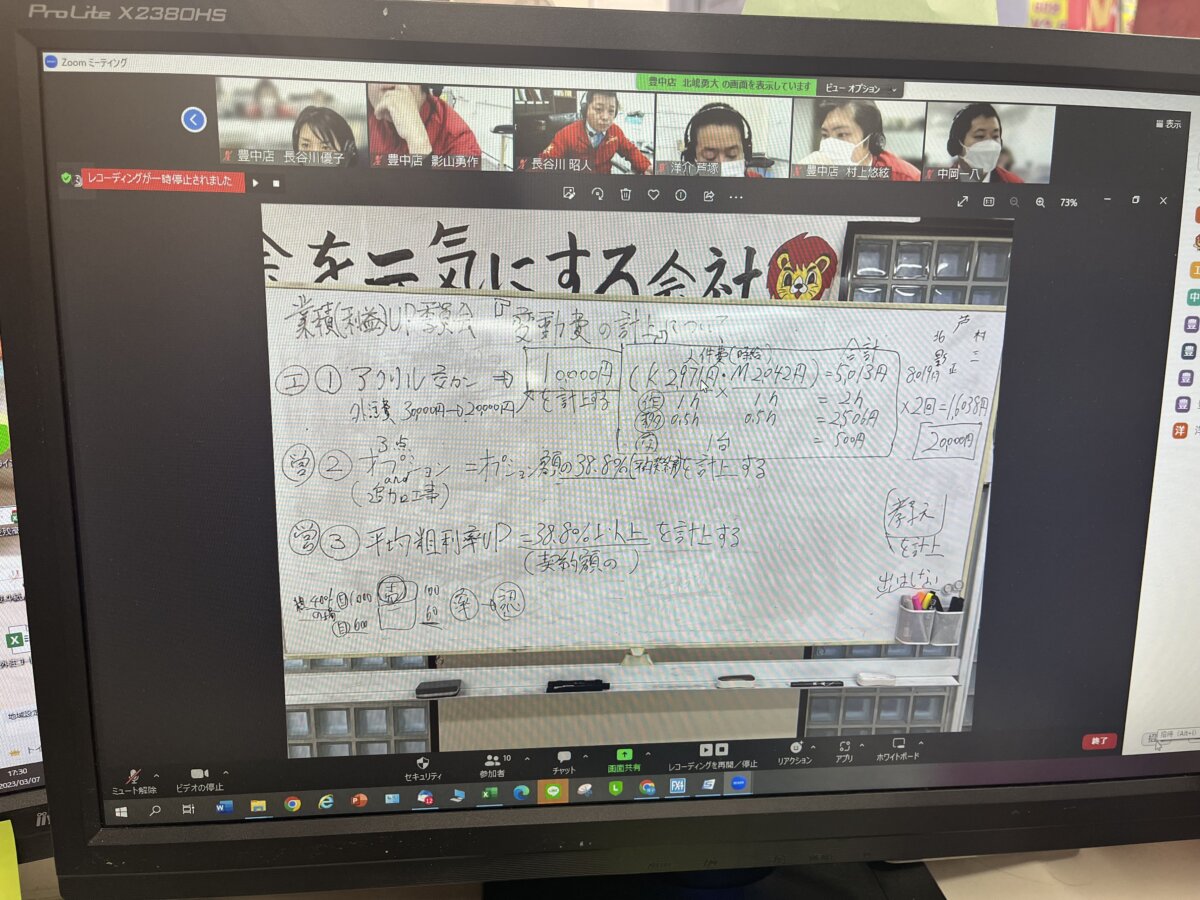 ProLite X2380HS
Zoom ミーティング
豊中店 北嶋勇大 の画面を表示しています
ビュー オプション
表示
豊中店 長谷川優子
豊中店 影山勇作
長谷川 昭人
洋介 芦塚
豊中店 村上悠絃
中岡一八
レコーディングが一時停止されました
73%
を元気にする会社
業績(利益)UP委員会 『変動費の計上』について
人件費(時給) 合計
工 ① アクリル交カン ⇒ 10,000円 (K 2,971円・M 2,042円) = 5,013円
外注費 30,000円→20,000円 を計上する
作 1h 1h = 2h
移 0.5h 0.5h = 2506円
1台 = 500円
8019円
×2回=16,038円
20,000円
3点
営 ② オプション = オプション額の38.8%を計上する
and
(追加工事)
営 ③ 平均粗利率UP = 38.8%以上を計上する
(契約額の )
を計上
出はしない
1,000
100
600
60
率 → 認
終了
ミュート解除
ビデオの停止
セキュリティ
参加者
10
チャット
画面共有
レコーディングを再開/停止
リアクション
アプリ
ホワイトボード
17:30
2023/03/07